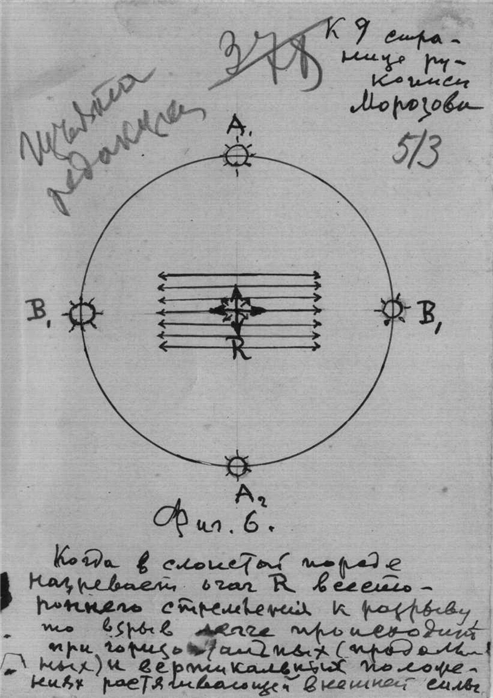 378
К 9 стра-
нице ру-
кописи
Морозова
5/3
редакции
A₁
B₁
B₁
R
A₂
Фиг. 6.
Когда в слоистой породе
назревает очаг R всесто-
роннего стремления к разрыву
то взрыв легче происходит
при горизонтальных (продоль-
ных) и вертикальных положе-
ниях растягивающей внешней силы